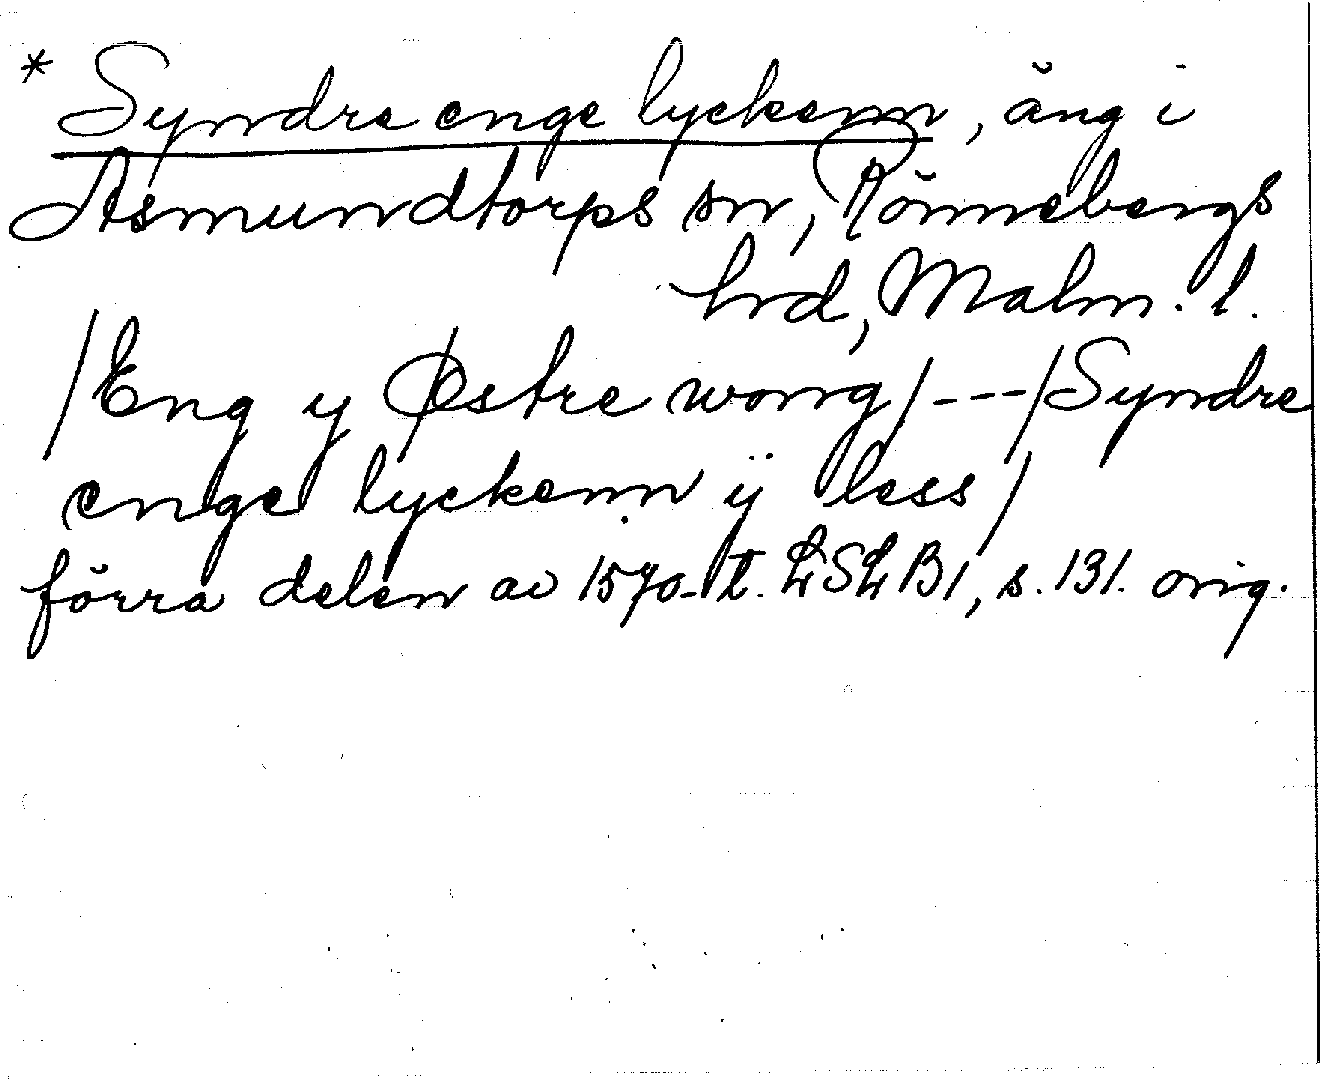 * Syndre enge lyckenn, äng i
Asmundtorps sn, Rönnebergs
hrd, Malm. l.
/Eng y Østre wong/---/Syndre
enge lyckenn ÿ less/
förra delen av 1570-t. LSLB1, s. 131. orig.